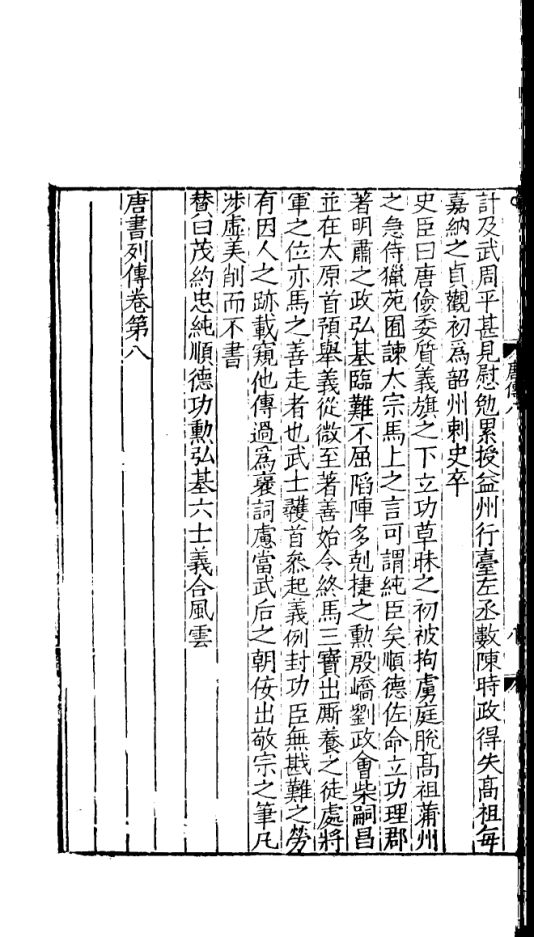 計及武周平甚見慰勉累授益州行臺左丞數陳時政得失髙祖每
嘉納之貞觀初爲韶州刺史卒
史臣曰唐儉委質義旗之下立功草昧之初被拘虜庭脫髙祖蒲州
之急侍獵苑囿諫太宗馬上之言可謂純臣矣順德佐命立功理郡
著明肅之政弘基臨難不屈陷陣多剋捷之勳殷嶠劉政會柴嗣昌
並在太原首預舉義從微至著善始令終馬三寳出厮養之徒處將
軍之位亦馬之善走者也武士彠首叅起義例封功臣無戡難之勞
有因人之跡載窺他傳過爲襃詞慮當武后之朝佞出敬宗之筆凡
渉虛美削而不書
賛曰茂約忠純順德功勲弘基六士義合風雲
唐書列傳卷第八